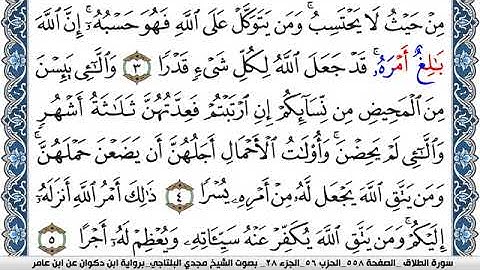 مِنْ حَيْثُ لَا يَحْتَسِبُ ۚ وَمَن يَتَوَكَّلْ عَلَى اللَّهِ فَهُوَ حَسْبُهُ ۚ إِنَّ اللَّهَ
بَالِغٌ أَمْرَهُ ۚ قَدْ جَعَلَ اللَّهُ لِكُلِّ شَيْءٍ قَدْرًا ٣ وَالَّـٰٓـِٔي يَئِسْنَ
مِنَ الْمَحِيضِ مِن نِّسَآئِكُمْ إِنِ ارْتَبْتُمْ فَعِدَّتُهُنَّ ثَلَـٰثَةُ أَشْهُرٍ
وَالَّـٰٓـِٔي لَمْ يَحِضْنَ ۚ وَأُوْلَـٰتُ الْأَحْمَالِ أَجَلُهُنَّ أَن يَضَعْنَ حَمْلَهُنَّ ۚ
وَمَن يَتَّقِ اللَّهَ يَجْعَل لَّهُ مِنْ أَمْرِهِ يُسْرًا ٤ ذَٰلِكَ أَمْرُ اللَّهِ أَنزَلَهُ
إِلَيْكُمْ ۚ وَمَن يَتَّقِ اللَّهَ يُكَفِّرْ عَنْهُ سَيِّـَٔاتِهِ وَيُعْظِمْ لَهُ أَجْرًا ٥
سورة الطلاق _ الصفحة ٥٥٨_ الحزب ٥٦_ الجزء ٢٨ _ بصوت الشيخ مجدي البلتاجي_ برواية ابن ذكوان عن ابن عامر